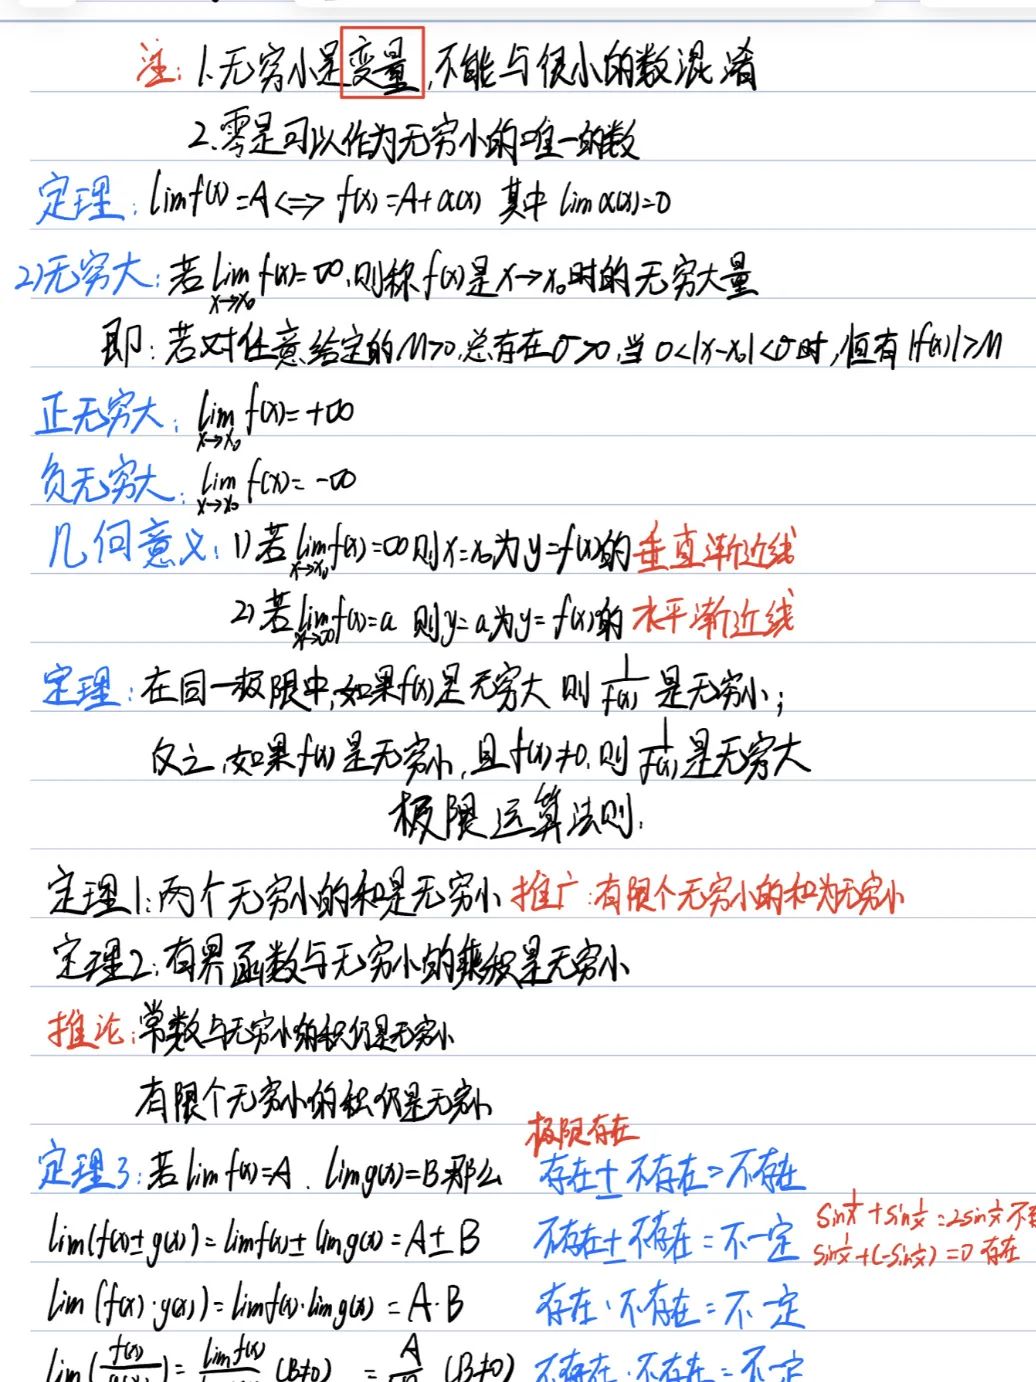 注:1.无穷小是变量,不能与很小的数混淆
2.零是可以作为无穷小的唯一的数
定理:lim f(x)=A⟺f(x)=A+α(x) 其中 lim α(x)=0
2)无穷大:若 lim x→x₀ f(x)=∞,则称f(x)是x→x₀时的无穷大量
即:若对任意给定的M>0,总存在δ>0,当 0<|x-x₀|<δ时,恒有|f(x)|>M
正无穷大:lim x→x₀ f(x)=+∞
负无穷大:lim x→x₀ f(x)=-∞
几何意义:1)若 lim x→x₀ f(x)=∞ 则x=x₀为y=f(x)的垂直渐近线
2)若 lim x→∞ f(x)=a 则y=a为y=f(x)的水平渐近线
定理:在同一极限中,如果f(x)是无穷大 则 1/f(x) 是无穷小;
反之,如果f(x)是无穷小,且f(x)≠0,则 1/f(x) 是无穷大
极限运算法则:
定理1:两个无穷小的和是无穷小 推广:有限个无穷小的和为无穷小
定理2:有界函数与无穷小的乘积是无穷小
推论:常数与无穷小的积仍是无穷小
有限个无穷小的积仍是无穷小
极限存在
定理3:若 lim f(x)=A . lim g(x)=B 那么 存在±不存在=不存在
lim(f(x)±g(x))=lim f(x)±lim g(x)=A±B 不存在±不存在=不一定 sin 1/x+sin 1/x=2sin 1/x 不
sin 1/x+(-sin 1/x)=0 存在
lim(f(x)·g(x))=lim f(x)·lim g(x)=A·B 存在·不存在=不一定
lim(f(x)/g(x))=lim f(x)/ (B≠0) =A/ (B≠0) 不存在·不存在=不一定